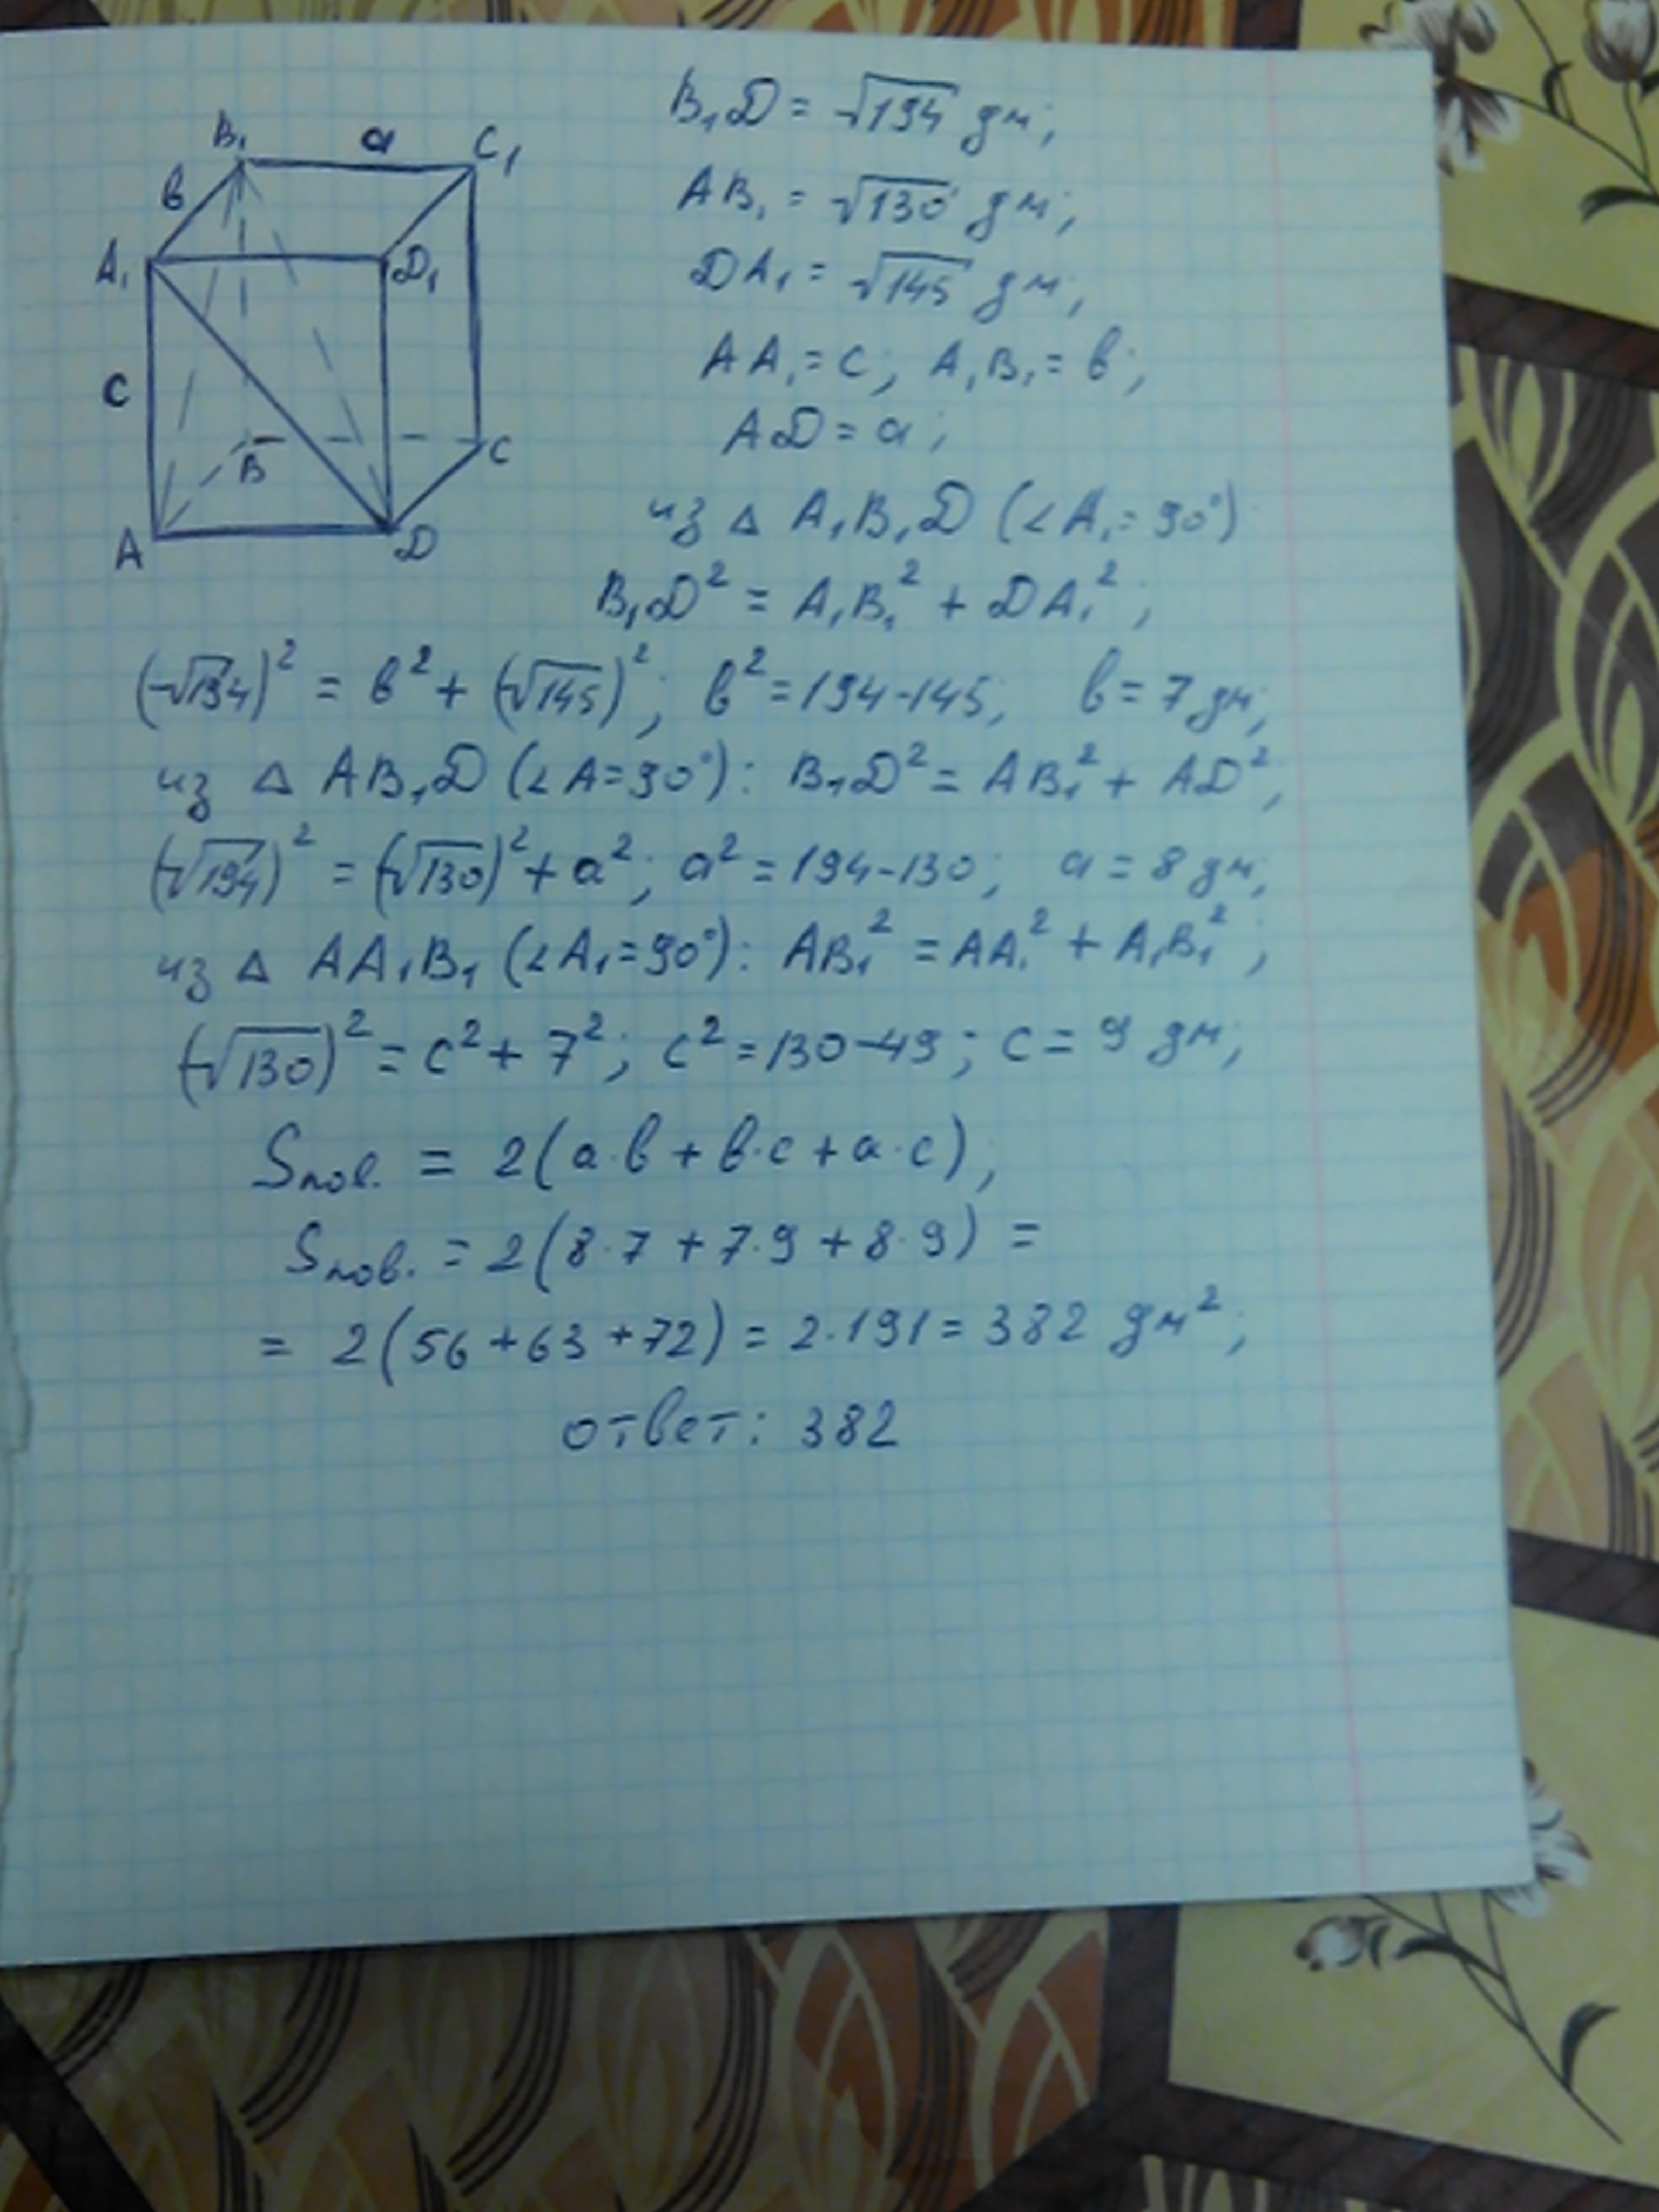 B₁ a C₁
в
A₁ D₁
c
B C
A D
B₁D = √194 дм;
AB₁ = √130 дм;
DA₁ = √145 дм;
AA₁ = c; A₁B₁ = в;
AD = a;
из △ A₁B₁D (∠A₁ = 90°)
B₁D² = A₁B₁² + DA₁²;
(√194)² = в² + (√145)²; в² = 194-145; в = 7 дм;
из △ AB₁D (∠A = 90°): B₁D² = AB₁² + AD²;
(√194)² = (√130)² + a²; a² = 194-130; a = 8 дм;
из △ AA₁B₁ (∠A₁ = 90°): AB₁² = AA₁² + A₁B₁²;
(√130)² = c² + 7²; c² = 130-49; c = 9 дм;
Sпов. = 2(a·в + в·c + a·c);
Sпов. = 2(8·7 + 7·9 + 8·9) =
= 2(56+63+72) = 2·191 = 382 дм²;
ответ: 382